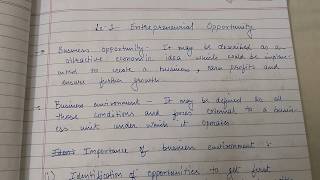 Le-1 Entrepreneurial Opportunity
Business opportunity:- It may be described as an
attractive economic idea which could be implem-
ented to create a business, earn profits and
ensure further growth.
Business environment - It may be defined as all
those conditions and forces external to a busin-
ess unit under which it operates.
Importance of business environment :
(i) Identification of opportunities to get first